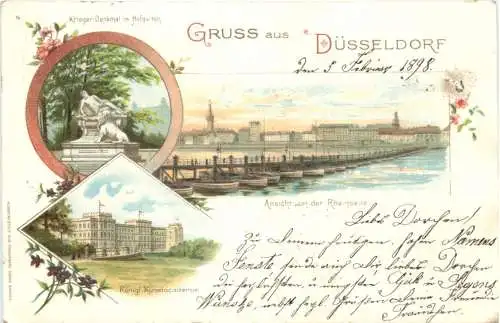 Krieger-Denkmal im Hofgarten
GRUSS AUS DÜSSELDORF
den 5. Februar 1898.
Ansicht von der Rheinseite
Königl. Kunstacademie
Liebes Dorchen!
Zu Deinem heutigen hohen Namens
Feste sende ich Dir liebes Dorchen
die herzlichsten u. innigsten Glück u. Segens
Wünsche, nebst Grüßen Deine